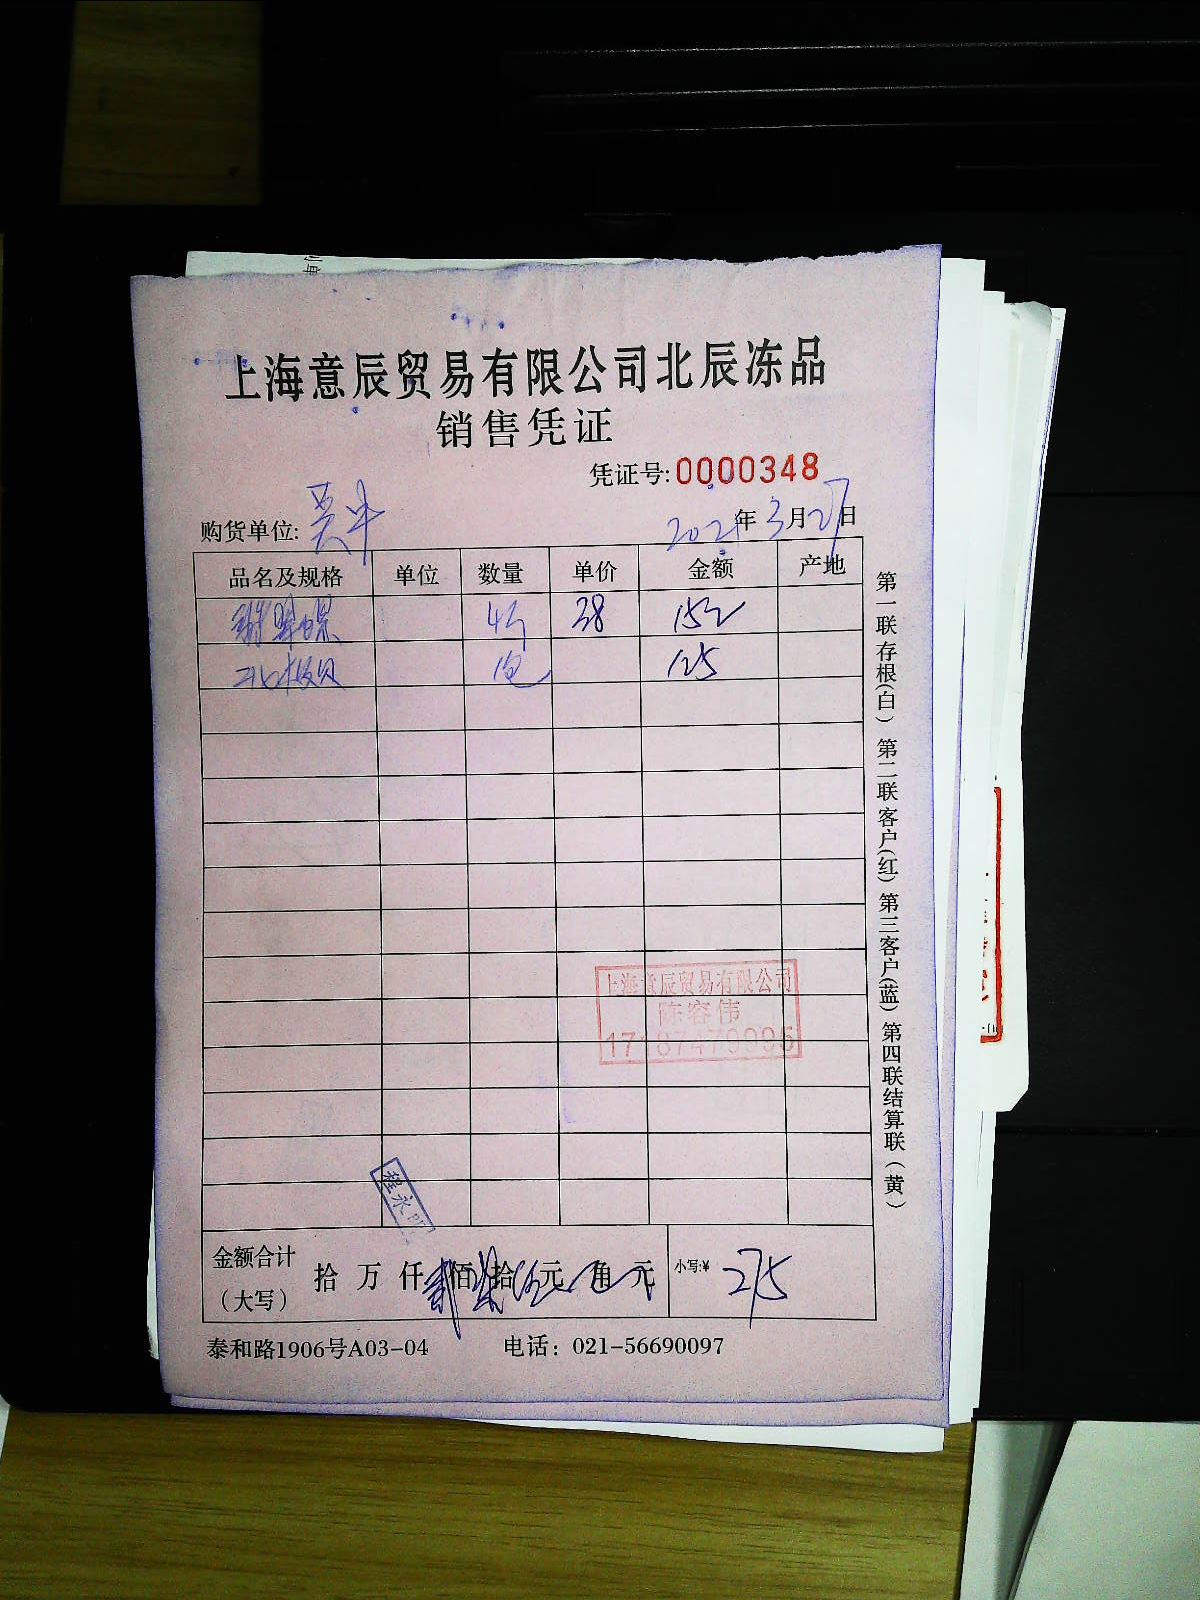 上海意辰贸易有限公司北辰冻品
销售凭证
凭证号:0000348
购货单位: 吴中
2021年3月27日
品名及规格 单位 数量 单价 金额 产地
4斤 38 152
1包 125
上海意辰贸易有限公司
陈容伟
程永
金额合计
(大写)
拾 万 仟 贰佰柒拾伍元 角 元 小写:¥ 275
泰和路1906号A03-04 电话: 021-56690097
第一联存根(白) 第二联客户(红) 第三客户(蓝) 第四联结算联(黄)